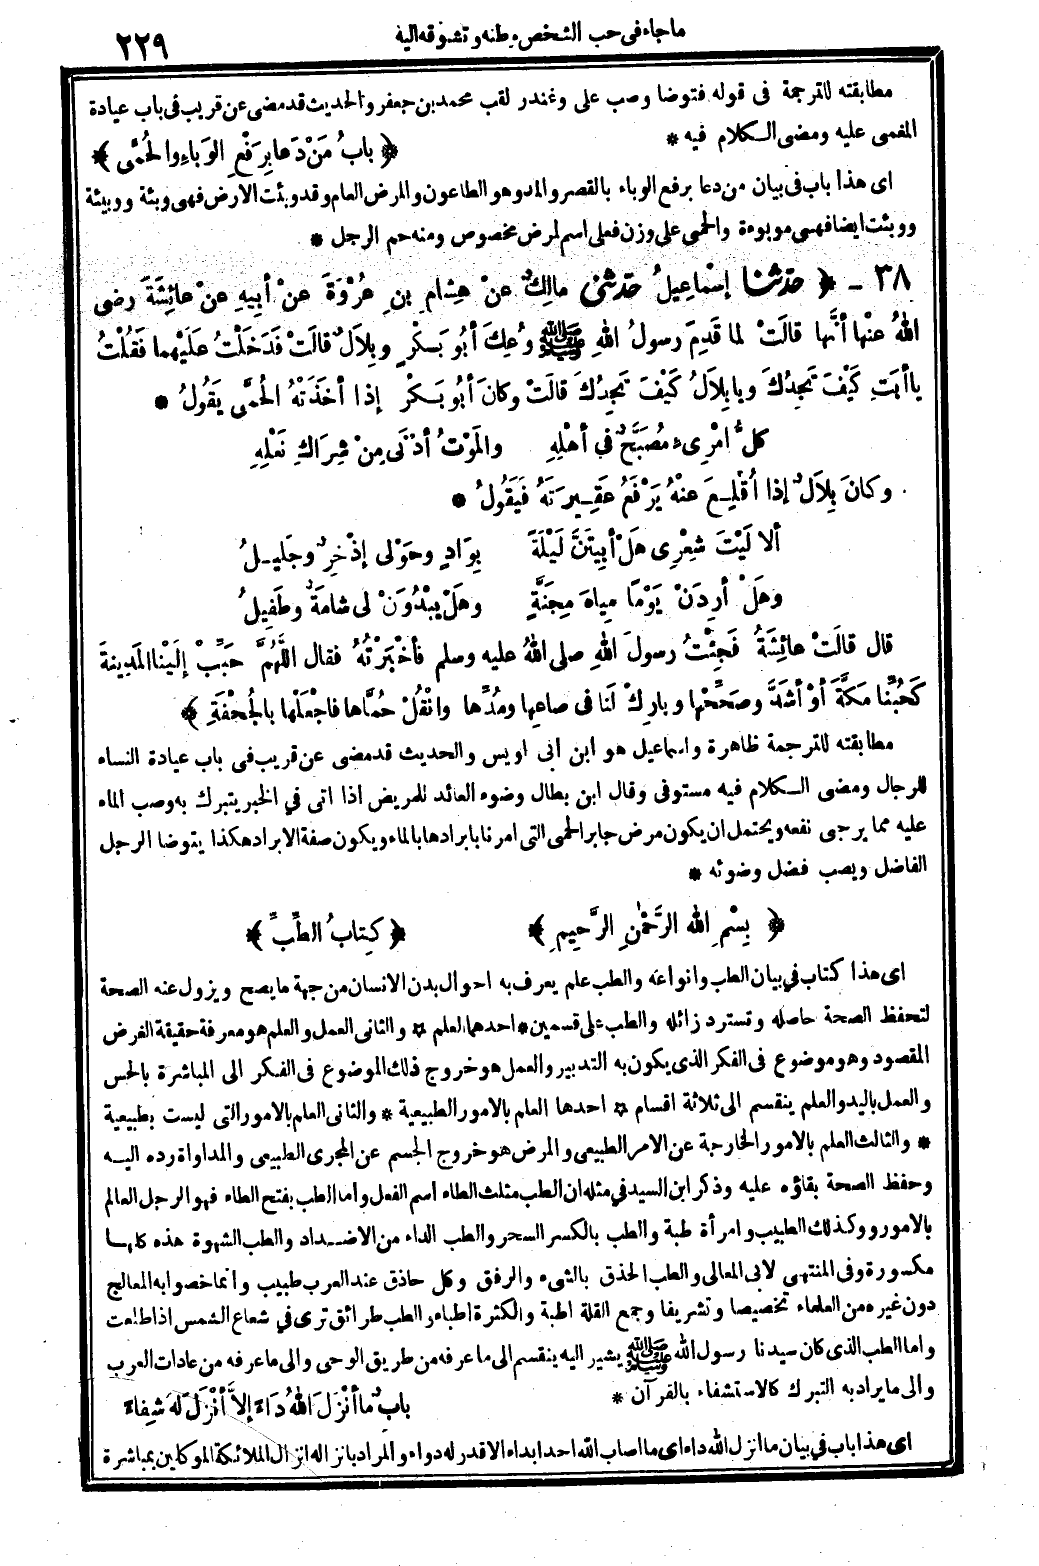 ما جاء في حب الشخص وطنه وتشوقه اليه
٢٢٩
مطابقته للترجمة في قوله فتوضا وصب على وغندر لقب محمد بن جعفر والحديث قد مضى عن قريب في باب عيادة
المغمى عليه ومضى الكلام فيه *
﴿ بابُ مَنْ دَعا بِرَفْعِ الوَباءِ والحُمَّى ﴾
اى هذا باب فى بيان من دعا برفع الوباء بالقصر والمد وهو الطاعون والمرض العام وقد وبئت الارض فهى وبئة ووبيئة
ووبئت ايضا فهى موبوءة والحمى على وزن فعلى اسم لمرض مخصوص ومنه حم الرجل *
٣٨ - ﴿ حدّثنا إسْماعِيلُ حدّثنى مالِكٌ عنْ هِشامِ بنِ عُرْوَةَ عنْ أبِيهِ عنْ عائِشَةَ رضى
اللهُ عنْها أنَّها قالَتْ لمَا قَدِمَ رسولُ اللهِ ﷺ وُعِكَ أبُو بَكْرٍ وبِلالٌ قالَتْ فَدَخَلْتُ عَلَيْهِما فَقُلْتُ
ياأبَتِ كَيْفَ تَجِدُكَ ويا بِلاَلُ كَيْفَ تَجِدُكَ قالَتْ وكانَ أبُو بَكْرٍ إذا أخَذَتْهُ الحُمَّى يَقُولُ *
كلُّ امْرِىءٍ مُصَبَّحٌ في أهْلِهِ والمَوْتُ أدْنَى مِنْ شِرَاكِ نَعْلِهِ
وكانَ بِلاَلٌ إذا أُقْلِعَ عنْهُ يَرْفَعُ عَقِيرَتَهُ فَيَقُولُ *
ألا لَيْتَ شِعْرِى هَلْ أبِيتَنَّ لَيْلَةً بِوَادٍ وحَوْلى إذْخِرٌ وجَلِيلُ
وهَلْ أرِدَنْ يَوْمًا مِياهَ مِجَنَّةٍ وهَلْ يَبْدُوَنْ لى شامَةٌ وطَفِيلُ
قال قالَتْ عائِشَةُ فَجِئْتُ رسولَ اللهِ صلى اللهُ عليه وسلم فأخْبَرْتُهُ فقال اللَّهُمَّ حَبِّبْ إلَيْنا المَدِينةَ
كَحُبِّنا مَكَّةَ أوْ أشَدَّ وصَحِّحْها وبارِكْ لَنا فى صاعِها ومُدِّها وانْقُلْ حُمَّاها فاجْعَلْها بالجُحْفَةِ ﴾
مطابقته للترجمة ظاهرة واسماعيل هو ابن ابى اويس والحديث قد مضى عن قريب فى باب عيادة النساء
للرجال ومضى الكلام فيه مستوفى وقال ابن بطال وضوء العائد للمريض اذا اتى في الخير يتبرك به وصب الماء
عليه مما يرجى نفعه ويحتمل ان يكون مرض جابر الحمى التى امرنا بابرادها بالماء ويكون صفة الابراد هكذا يتوضا الرجل
الفاضل ويصب فضل وضوئه *
﴿ بِسْمِ اللهِ الرَّحْمٰنِ الرَّحِيمِ ﴾ ﴿ كِتابُ الطِّبِّ ﴾
اى هذا كتاب في بيان الطب وانواعه والطب علم يعرف به احوال بدن الانسان من جهة ما يصح ويزول عنه الصحة
لتحفظ الصحة حاصله وتسترد زائله والطب على قسمين * احدهما العلم * والثانى العمل والعلم هو معرفة حقيقة الغرض
المقصود وهو موضوع فى الفكر الذى يكون به التدبير والعمل هو خروج ذلك الموضوع فى الفكر الى المباشرة بالحس
والعمل باليد والعلم ينقسم الى ثلاثة اقسام * احدها العلم بالامور الطبيعية * والثانى العلم بالامور التى ليست بطبيعية
* والثالث العلم بالامور الخارجة عن الامر الطبيعى والمرض هو خروج الجسم عن المجرى الطبيعى والمداواة رده اليه
وحفظ الصحة بقاؤه عليه وذكر ابن السيد في مثله ان الطب مثلث الطاء اسم الفعل واما الطب بفتح الطاء فهو الرجل العالم
بالامور وكذلك الطبيب وامرأة طبة والطب بالكسر السحر والطب الداء من الاضداد والطب الشهوة هذه كلها
مكسورة وفى المنتهى لابى المعالى والطب الحذق بالشىء والرفق وكل حاذق عند العرب طبيب وانما خصوا به المعالج
دون غيره من العلماء تخصيصا وتشريفا وجمع القلة اطبة والكثرة اطباء والطب طرائق ترى في شعاع الشمس اذا طلعت
واما الطب الذى كان سيدنا رسول الله ﷺ يشير اليه ينقسم الى ما عرفه من طريق الوحى والى ما عرفه من عادات العرب
والى ما يراد به التبرك كالاستشفاء بالقرآن *
بابٌ ما أنْزَلَ اللهُ دَاءً إلاَّ أنْزَلَ لَهُ شِفاءً
اى هذا باب في بيان ما انزل الله داء اى ما اصاب الله احدا بداء الا قدر له دواء والمراد بانزاله انزال الملائكة الموكلين بمباشرة